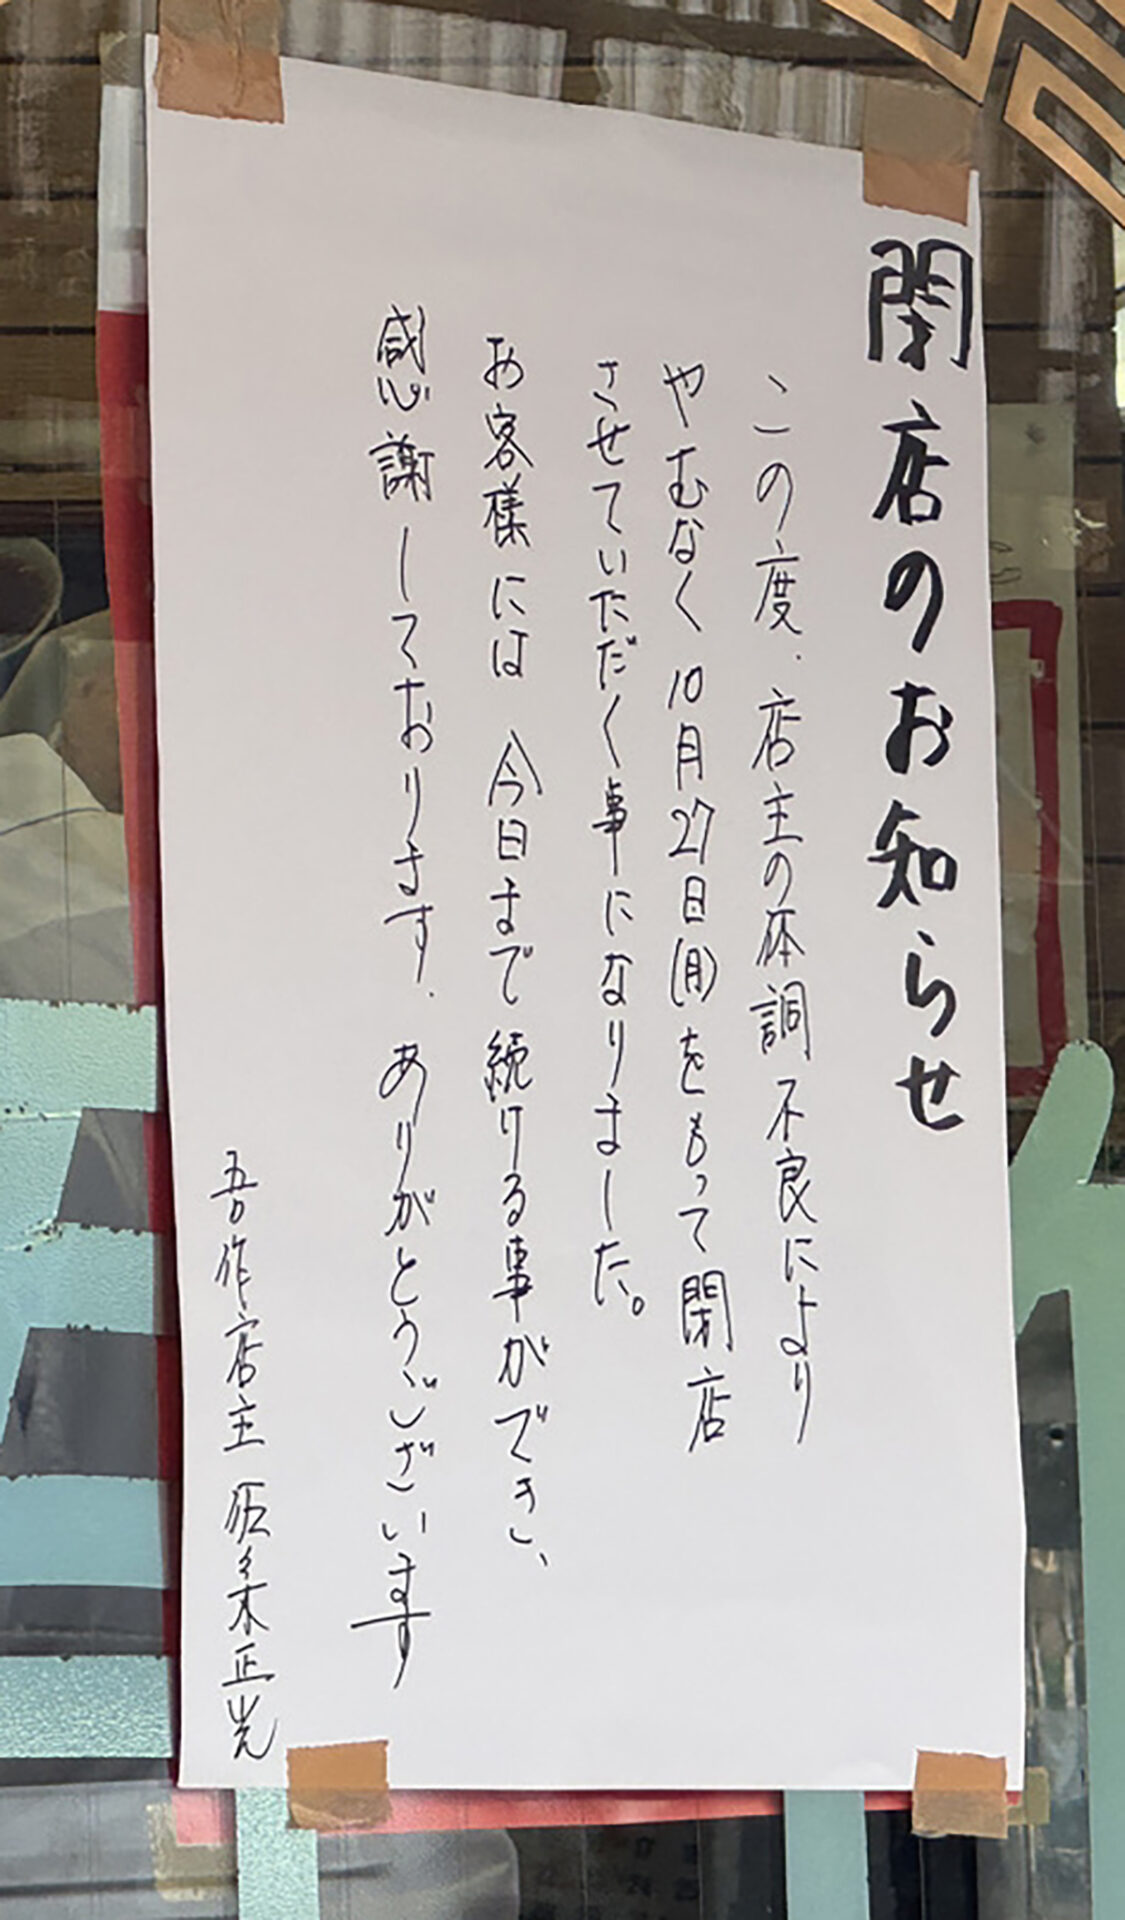 閉店のお知らせ
この度、店主の体調不良により
やむなく10月27日(月)をもって閉店
させていただく事になりました。
お客様には今日まで続ける事ができ、
感謝しております。ありがとうございます
吾作店主 佐々木正光